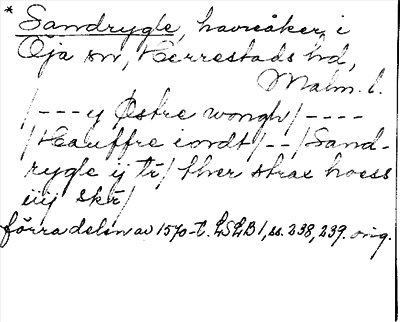 * Sandrygle, havreåker, i
Öja sn, Herrestads hd,
Malm. l.
/---y Østre wongh/----
/Hauffre iordt/--/Sand-
rygle ij tr/ thver strax hoess
iiij skr/
förra delen av 1570-t. LSLB 1, ss. 238, 239. orig.